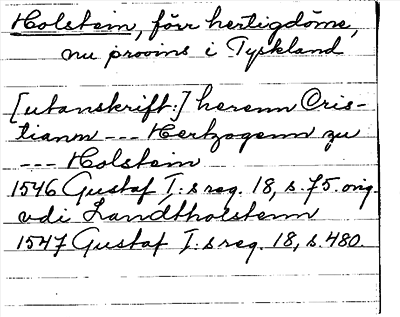 Holstein, förr hertigdöme,
nu provins i Tyskland
[utanskrift:] herenn Cris-
tiann --- Hertzogenn zu
--- Holstein
1546 Gustaf I:s reg. 18, s. 75. orig.
vdi Landtholstenn
1547 Gustaf I:s reg. 18, s. 480.